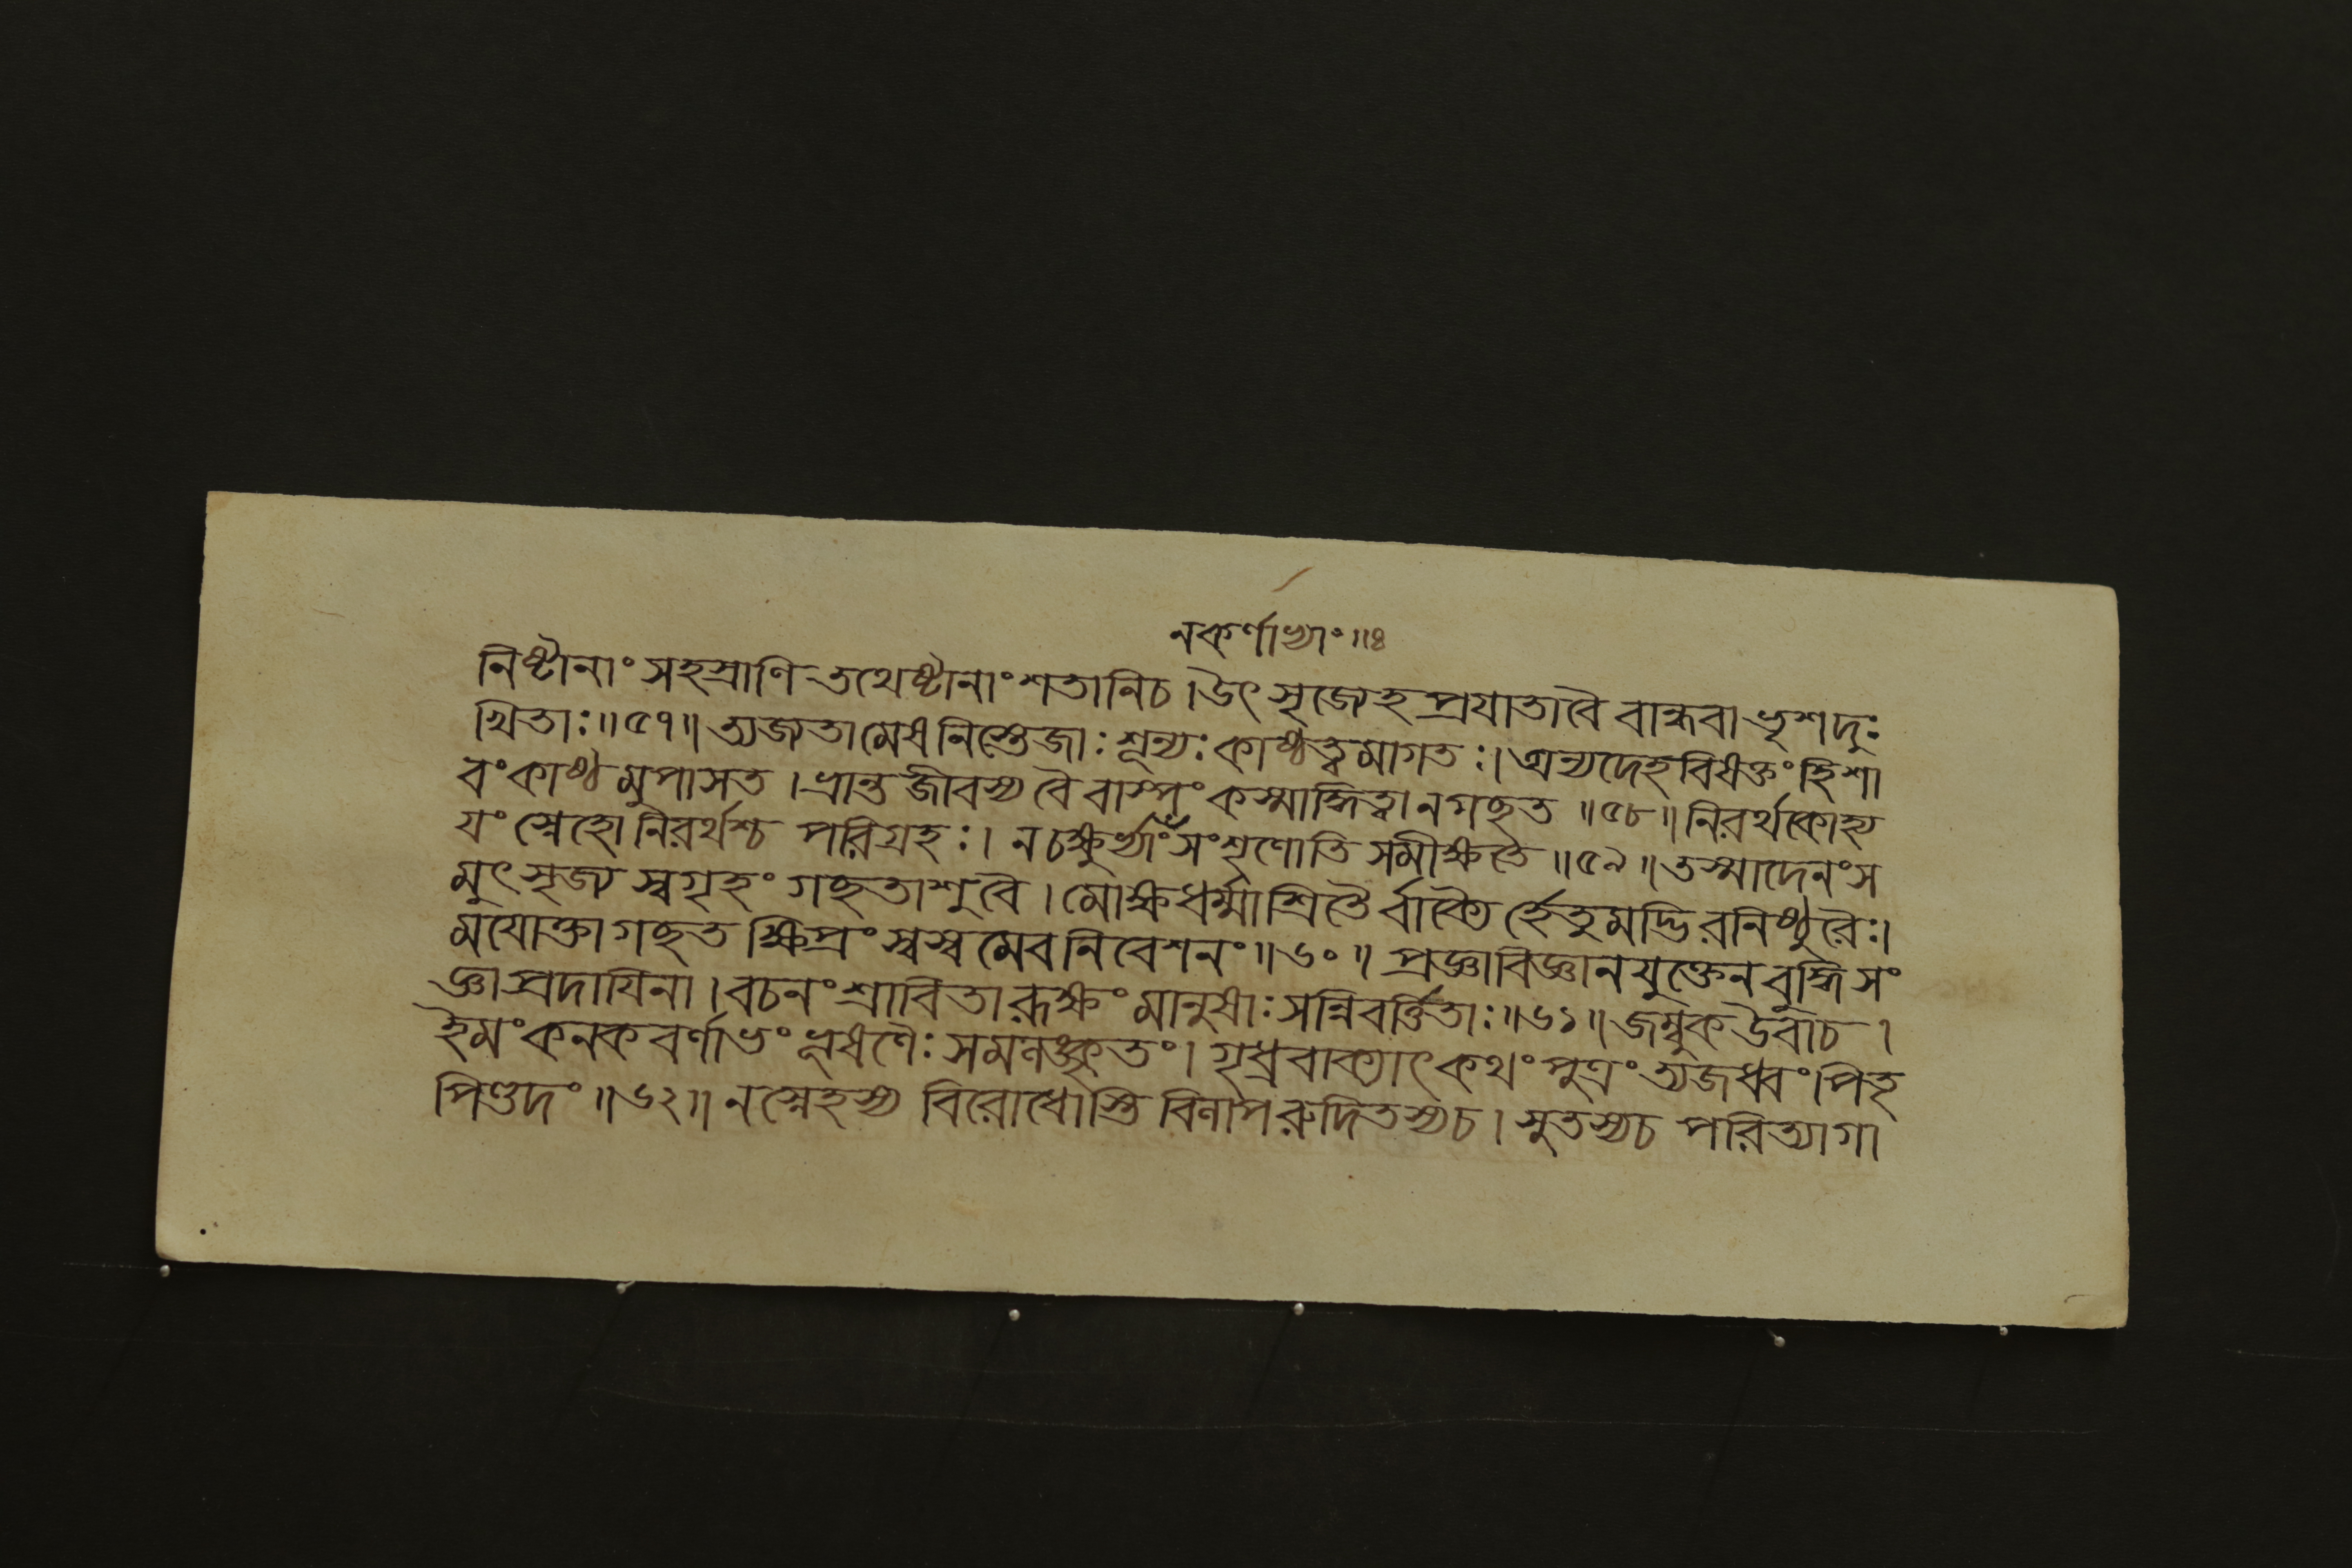 নকর্ণাভ্যাং॥৪
নিষ্টানাং সহস্রাণি তথেষ্টানাং শতানিচ। উৎসৃজ্যেহ প্রযাতাবৈ বান্ধবা ভৃশদুঃ
খিতাঃ॥৫৭॥ ত্যজ্যতামেষ নিস্তেজাঃ শূন্যঃ কাষ্ঠত্বমাগতঃ। অন্যদেহবিষক্তং হি শা
বং কাষ্ঠমুপাসত। ভ্রান্তজীবস্য বৈ বাস্পং কস্মাদ্ধিত্বা নগছত॥৫৮॥ নিরর্থকোহ্য
যং স্নেহো নিরর্থশ্চ পরিগ্রহঃ। ন চক্ষুর্ভ্যাং সংশৃণোতি সমীক্ষতে॥৫৯॥ তস্মাদেনং স
মুৎসৃজ্য স্বগৃহং গছতাশুবৈ। মোক্ষধর্ম্মাশ্রিতৈর্বাক্যৈর্হেতুমদ্ভিরনিষ্ঠুরৈঃ।
মযোক্তা গছত ক্ষিপ্রং স্বস্বমেব নিবেশনং॥৬০॥ প্রজ্ঞাবিজ্ঞানযুক্তেন বুদ্ধিসং
জ্ঞাপ্রদাযিনা। বচনং শ্রাবিতা রূক্ষং মানুষাঃ সন্নিবর্ত্তিতাঃ॥৬১॥ জম্বুক উবাচ।
হৈমং কনকবর্ণাভং ভূষণৈঃ সমলঙ্কৃতং। গৃধ্রবাক্যাৎ কথং পুত্রং ত্যজধ্বং পিতৃ
পিণ্ডদং॥৬২॥ ন স্নেহস্য বিরোধোস্তি বিলাপরুদিতস্যচ। সুতস্যচ পরিত্যাগা